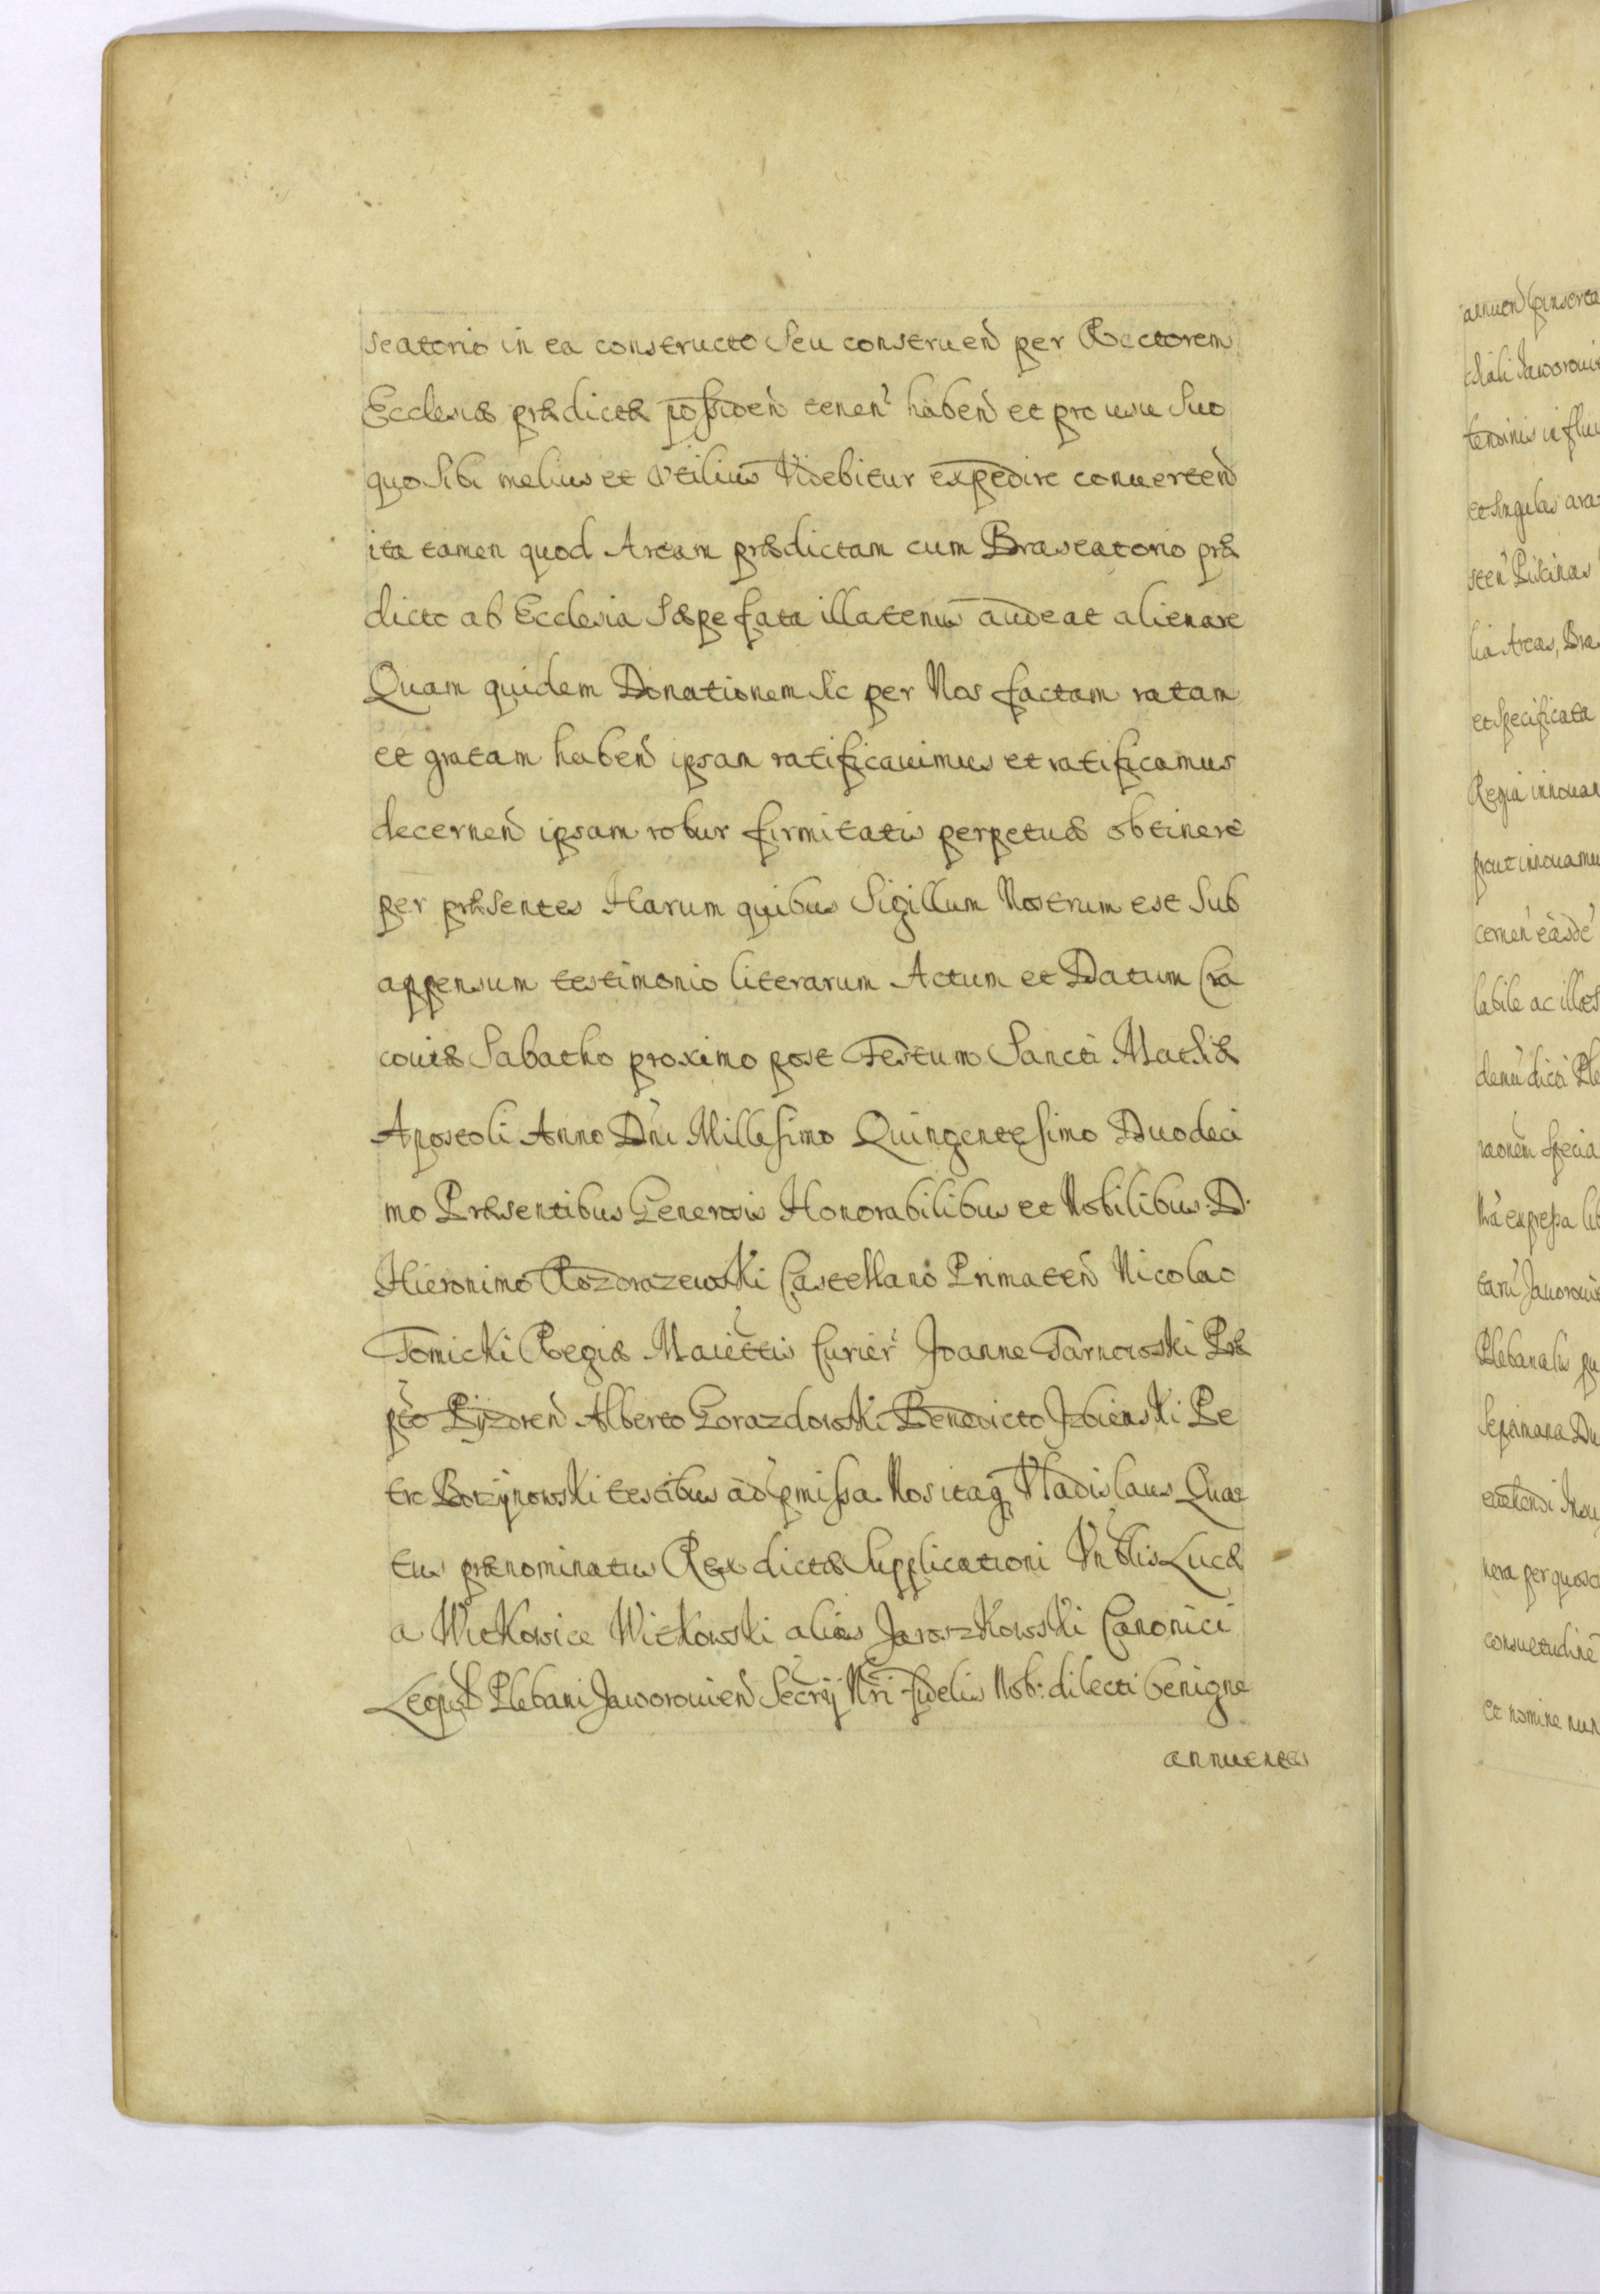 seatorio in ea constructo Seu construend per Rectorem
Ecclesiæ prædictæ possiden tenen habend et pro usu Suo
quo Sibi melius et Vtilius Videbitur expedire conuertend
ita tamen quod Aream prædictam cum Braseatorio præ
dicto ab Ecclesia Sæpe fata illatenus audeat alienare
Quam quidem Donationem Sic per Nos factam ratam
et gratam habend ipsam ratificauimus et ratificamus
decernend ipsam robur firmitatis perpetuæ obtinere
per præsentes Harum quibus Sigillum Nostrum est Sub
appensum testimonio literarum Actum et Datum Cra
couiæ Sabatho proximo post Festum Sancti Mathiæ
Apostoli Anno Dni Millesimo Quingentesimo Duodeci
mo Præsentibus Generosis Honorabilibus et Nobilibus D.
Hieronimo Rozdrazewski Castellano Primaten Nicolao
Tomicki Regiæ Maiettis Curier Joanne Tarnowski Præ
pto Byzdren Alberto Gorazdowski Benedicto Jzbienski Pe
tro Borzynowski testibus ad pmissa Nos itaq Vladislaus Quar
tus prænominatus Rex dictæ Supplicationi Vnblis Lucæ
a Witkowice Witkowski alias Jaroszkowski Canonici
Leopol Plebani Jaworouien Secrij Nri fidelis Nob: dilecti benigne
annuentes
annuen
et Singulas
sten Piscinas
lia Areas, Bra
et Specificata
Regia innouan
prout innouamu
labile ac illæs
Plebanalis
nera per quosc
consuetudine
et nomine nun